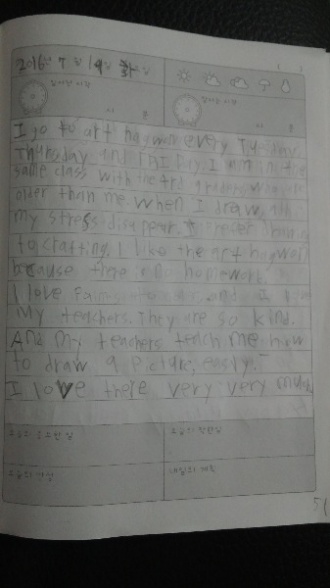 2016년 7월 19일 화요일
일어난 시각
잠자는 시각
I go to art hagwon every Tuesday,
Thursday and Friday. I am in the
same class with the 3rd graders who are
older than me. When I draw, all
my stress disappear. I prefer drawing
to crafting. I like the art hagwon
because there is no homework.
I love and I love
my teachers. They are so kind.
And my teachers teach me how
to draw a picture, easily.
I love there very very much.
오늘의 중요한 일
오늘의 착한일
오늘의 반성
내일의 계획
51